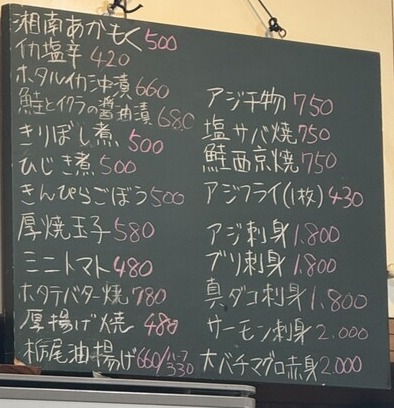 湘南あかもく500
イカ塩辛420
ホタルイカ沖漬660
鮭とイクラの醤油漬680
きりぼし煮500
ひじき煮500
きんぴらごぼう500
厚焼玉子580
ミニトマト480
ホタテバター焼780
厚揚げ焼480
栃尾油揚げ660/ハーフ330
アジ干物750
塩サバ焼750
鮭西京焼750
アジフライ(1枚)430
アジ刺身1.800
ブリ刺身1.800
真ダコ刺身1.800
サーモン刺身2.000
大バチマグロ赤身2000